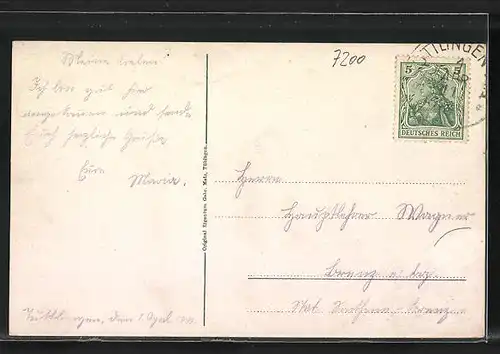 7200
Meine Lieben!
Ich bin gut hier
angekommen und sende
Euch herzliche Grüße
Eure
Maria.
Tuttlingen, den 1. April
Original Eigentum Gebr. Metz, Tübingen.
TTLINGEN
5 5
DEUTSCHES REICH
Herrn
Hauptlehrer Wagner
Brenz a.